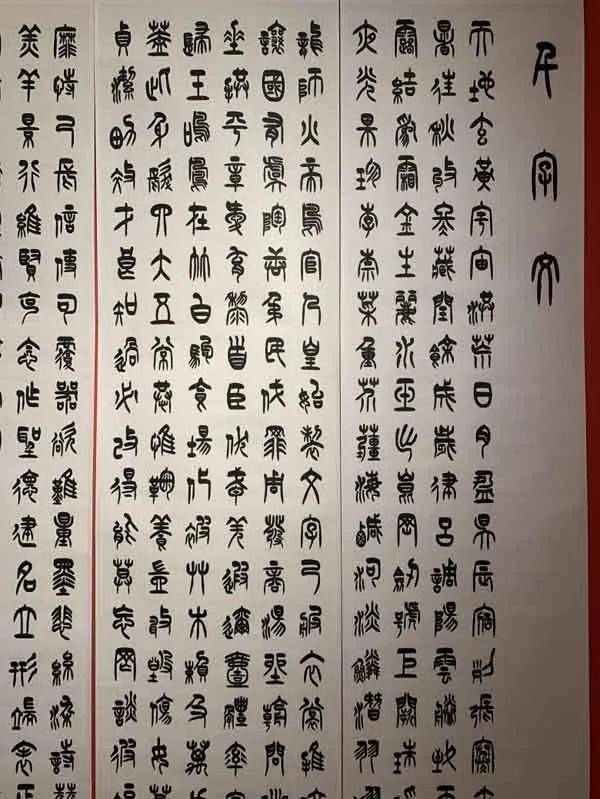 千字文
天地玄黃宇宙洪荒日月盈昃辰宿列張寒來
暑往秋收冬藏閏餘成歲律呂調陽雲騰致
露結為霜金生麗水玉出崑岡劍號巨闕珠
夜光果珍李柰菜重芥薑海鹹河淡鱗潛羽
龍師火帝鳥官人皇始製文字乃服衣裳推
讓國有虞陶唐弔民伐罪周發商湯坐朝問
垂拱平章愛育黎首臣伏戎羌遐邇壹體率
歸王鳴鳳在竹白駒食場化被草木賴及萬
蓋此身髮四大五常恭惟鞠養豈敢毀傷女
貞潔男效才良知過必改得能莫忘罔談彼
靡恃己長信使可覆器欲難量墨悲絲染詩
羔羊景行維賢克念作聖德建名立形端表正